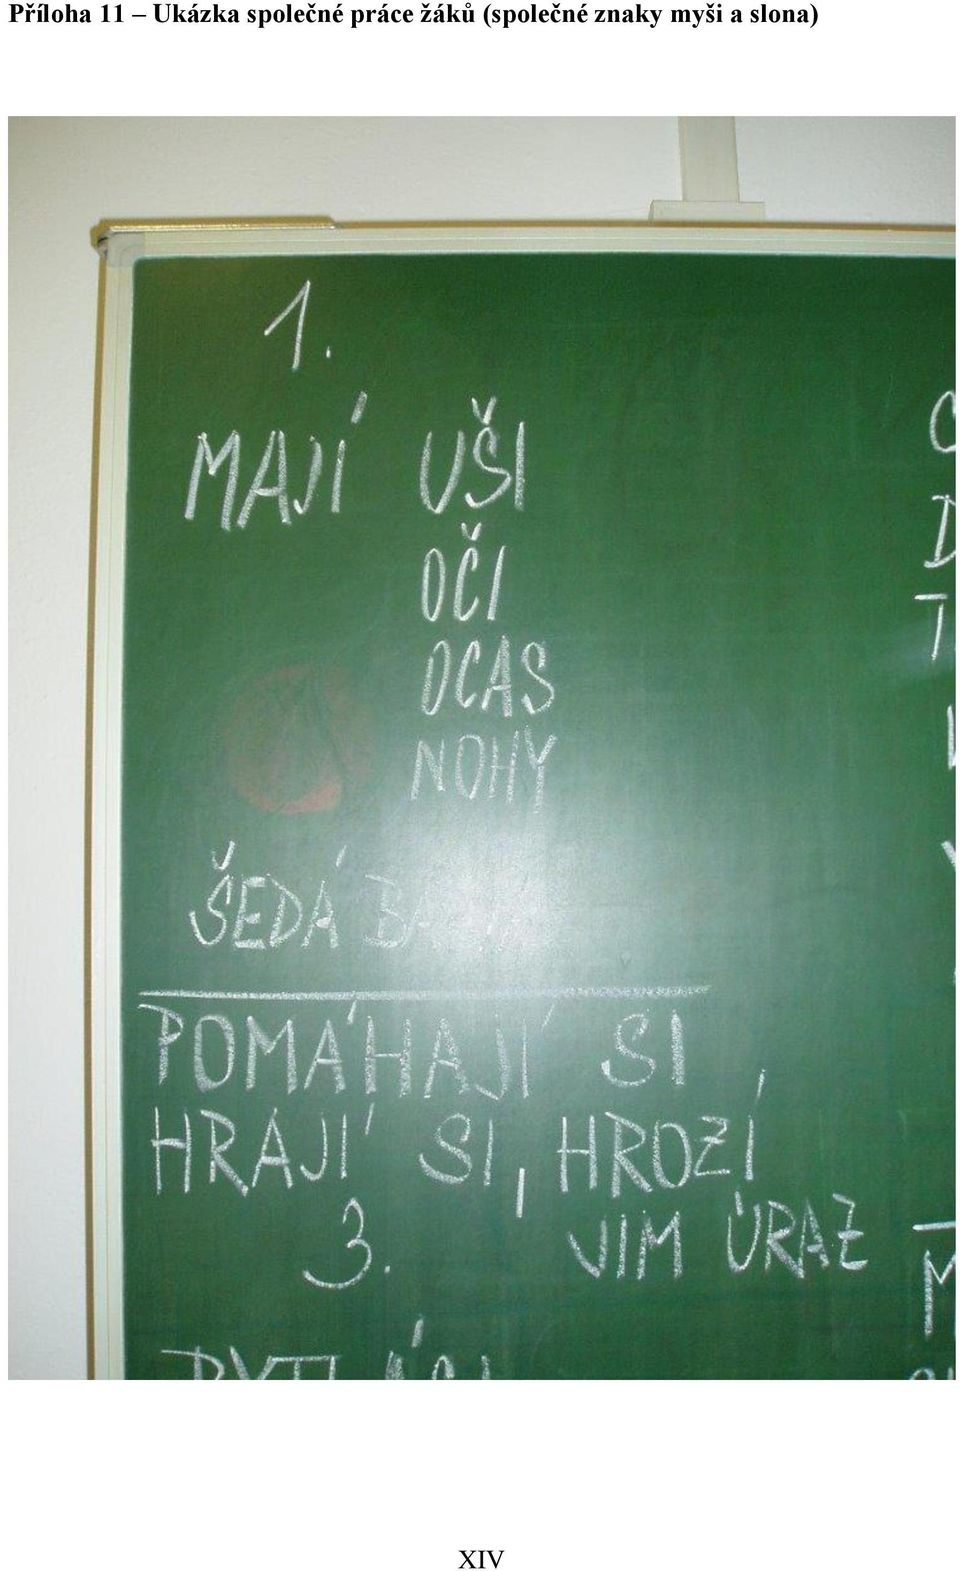 Příloha 11 – Ukázka společné práce žáků (společné znaky myši a slona)
1.
MAJÍ UŠI
OČI
OCAS
NOHY
ŠEDÁ
POMÁHAJÍ SI
HRAJÍ SI, HROZÍ
3. JIM ÚRAZ
XIV